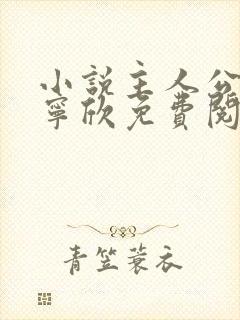 小說主人公
寧欣免費閱
青笠蓑衣